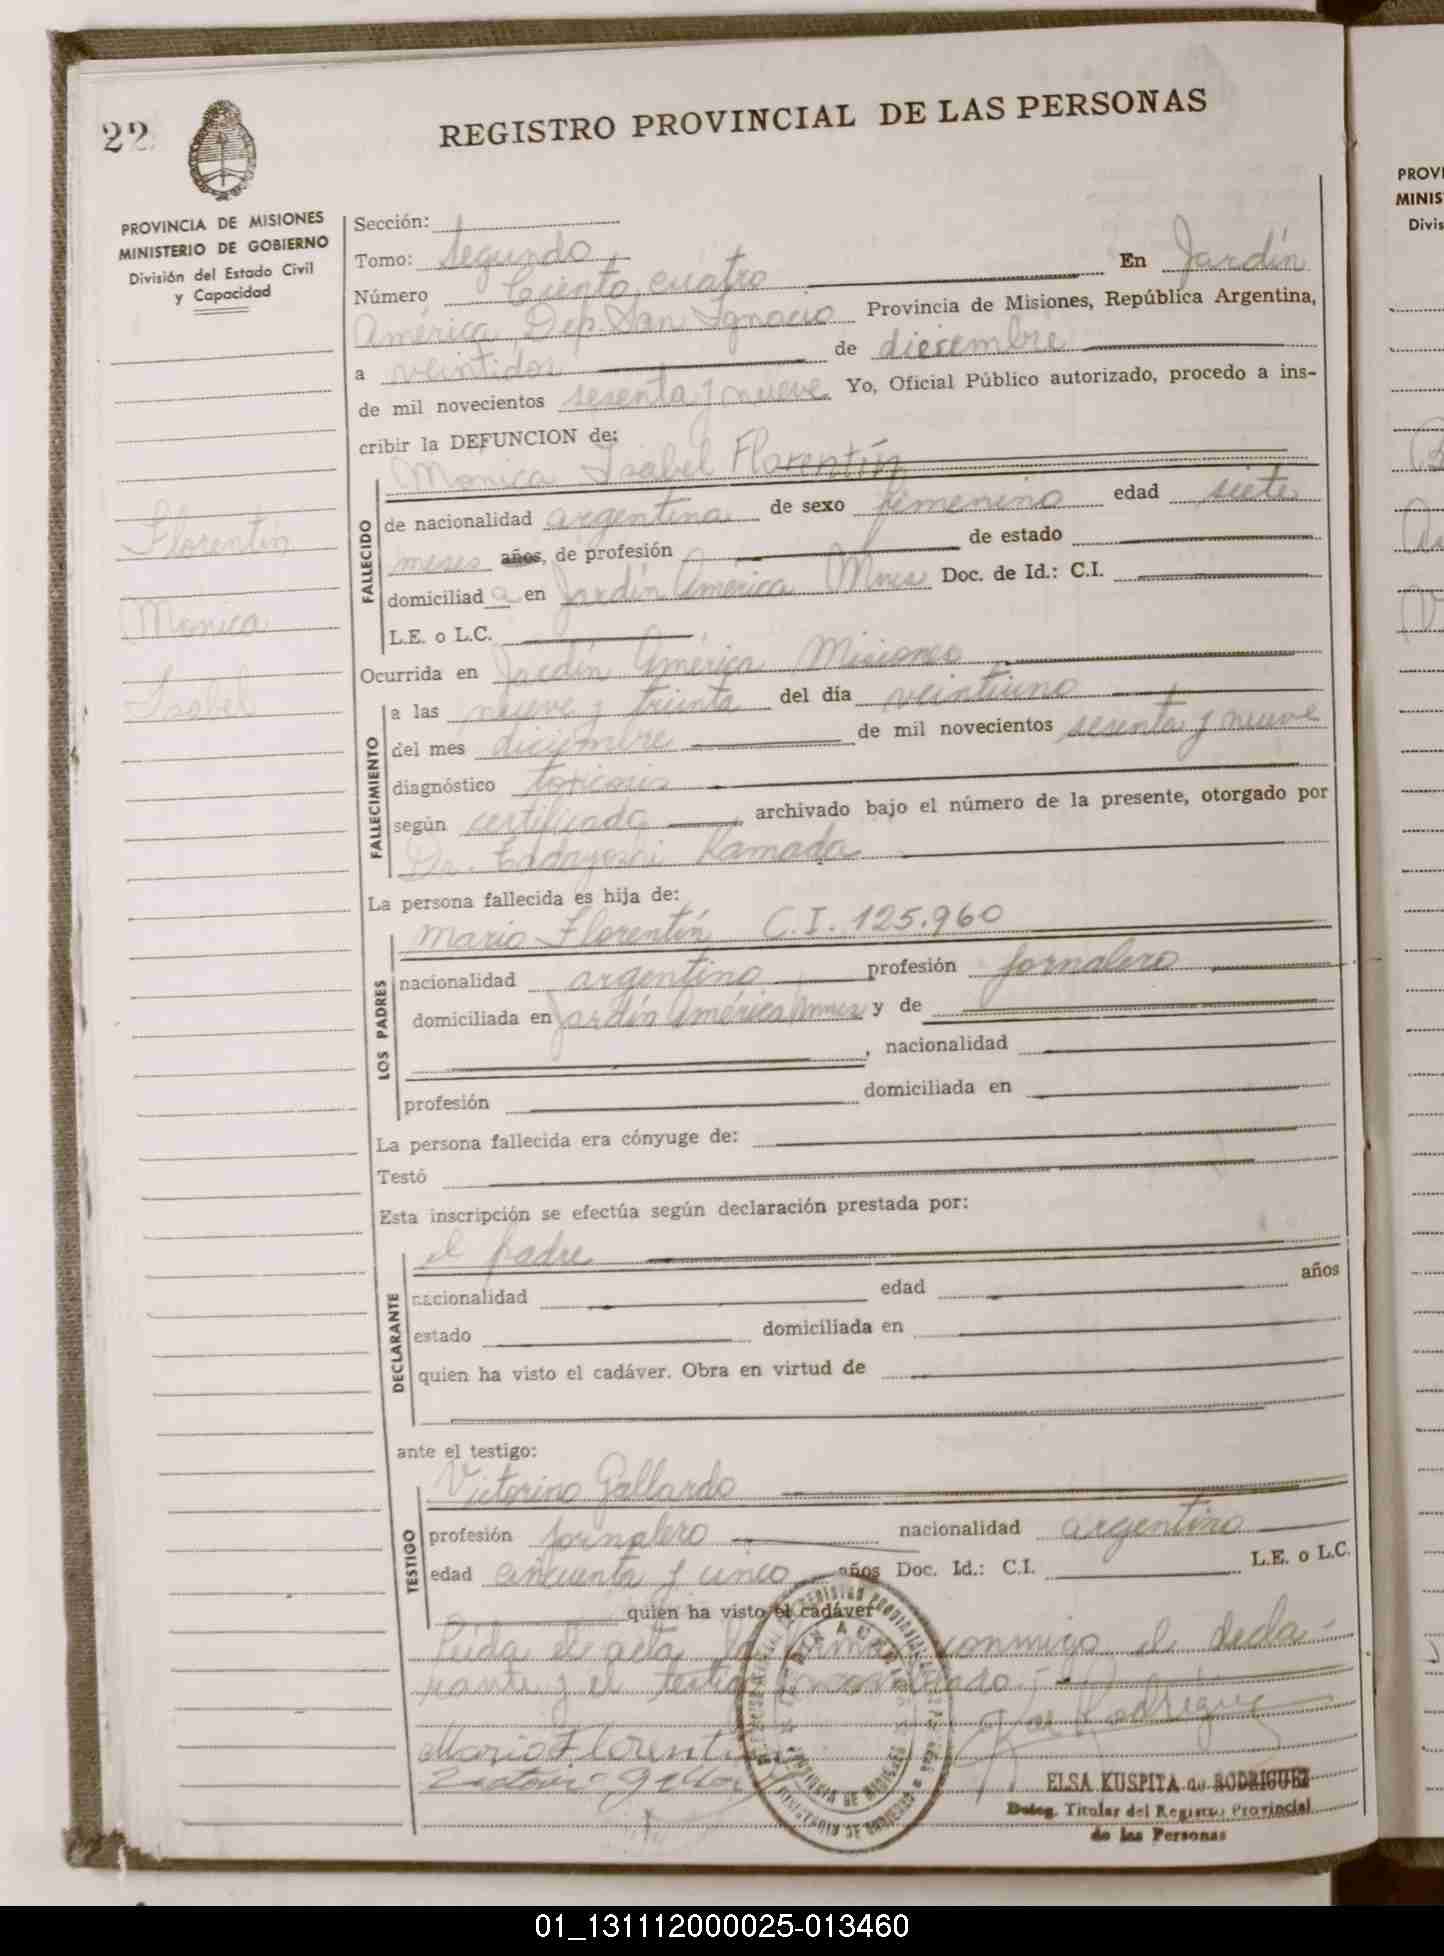 22
REGISTRO PROVINCIAL DE LAS PERSONAS
PROVINCIA DE MISIONES
MINISTERIO DE GOBIERNO
División del Estado Civil
y Capacidad
Sección:
Tomo: Segundo
Número Ciento cuatro En Jardín
América, Dep. San Ignacio Provincia de Misiones, República Argentina,
a veintidos de diciembre
de mil novecientos sesenta y nueve Yo, Oficial Público autorizado, procedo a ins-
cribir la DEFUNCION de:
Mónica Isabel Florentín
FALLECIDO
de nacionalidad argentina de sexo femenino edad siete
meses años, de profesión de estado
domiciliad a en Jardín América Mnes Doc. de Id.: C.I.
L.E. o L.C.
Florentín
Mónica
Isabel
Ocurrida en Jardín América Misiones
FALLECIMIENTO
a las nueve y treinta del día veintiuno
del mes diciembre de mil novecientos sesenta y nueve
diagnóstico toxicosis
según certificado archivado bajo el número de la presente, otorgado por
Dr. Tadayoshi Kamada
La persona fallecida es hija de:
LOS PADRES
Mario Florentín C.I. 125.960
nacionalidad argentino profesión jornalero
domiciliada en Jardín América Mnes y de
, nacionalidad
profesión domiciliada en
La persona fallecida era cónyuge de:
Testó
Esta inscripción se efectúa según declaración prestada por:
DECLARANTE
el padre
nacionalidad edad años
estado domiciliada en
quien ha visto el cadáver. Obra en virtud de
ante el testigo:
TESTIGO
Victorino Gallardo
profesión jornalero nacionalidad argentino
edad cincuenta y cinco años Doc. Id.: C.I. L.E. o L.C.
quien ha visto el cadáver
Leida el acta la firma conmigo el decla-
rante y el testigo nombrado.-
Mario Florentin
ELSA KUSPITA de RODRIGUEZ
Deleg. Titular del Registro Provincial
de las Personas
PROVI
MINIS
Divis
01_131112000025-013460